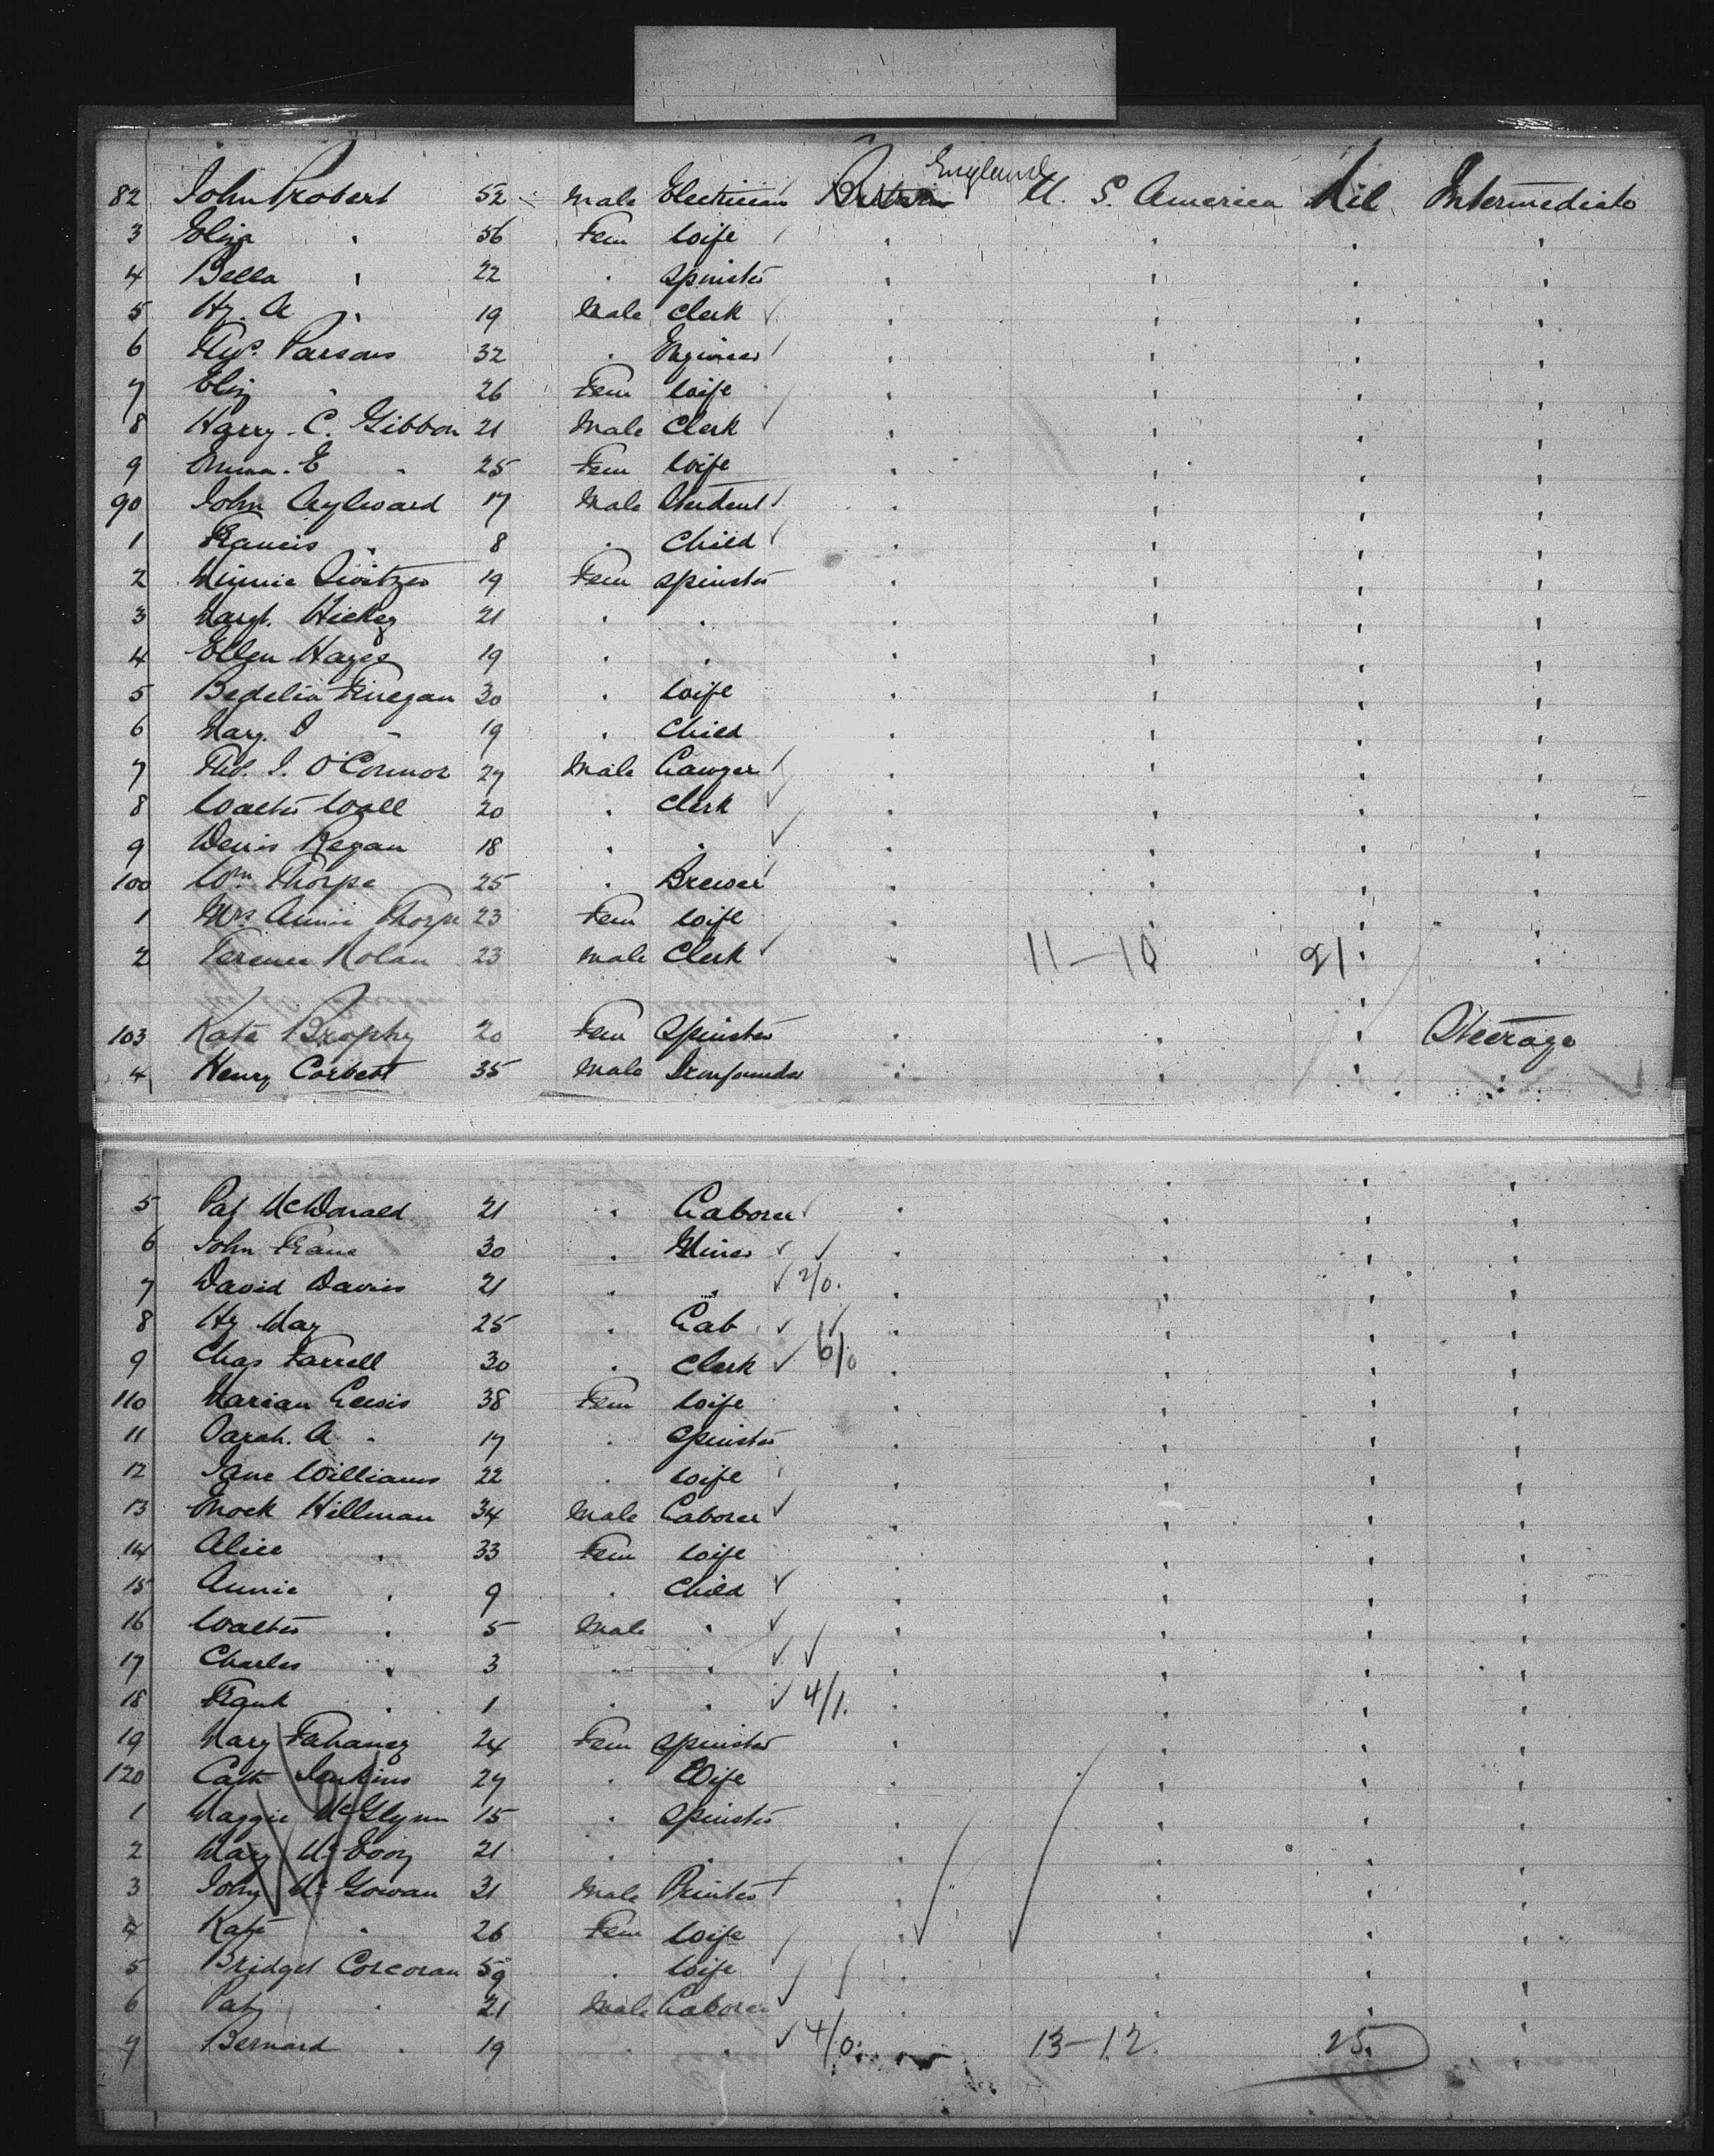 England
82 John Probert 52 Male Electrician Britain U. S. America Nil Intermediate
3 Eliza " 56 Fem Wife " " " "
4 Bella " 22 " Spinster " " " "
5 Hy. A " 19 Male Clerk " " " "
6 Parsons 32 " Engineer " " " "
7 Eliz " 26 Fem Wife " " " "
8 Harry. C. Gibbon 21 Male Clerk " " " "
9 Emma. E " 25 Fem Wife " " " "
90 John Aylward 17 Male Student " " " "
1 Francis " 8 " Child " " " "
2 Minnie Switzer 19 Fem Spinster " " " "
3 Margt. Hickey 21 " " " " " "
4 Ellen Hayes 19 " " " " " "
5 Bedelia Finegan 30 " Wife " " " "
6 Mary. " 19 " Child " " " "
7 O'Connor 27 Male " " " "
8 Walter Wall 20 " Clerk " " " "
9 Denis Regan 18 " " " " " "
100 Wm Thorpe 25 " Brewer " " " "
1 Mrs Annie Thorpe 23 Fem Wife " " " "
2 Terence Nolan 23 Male Clerk " 11-10 21 " "
103 Kate Brophy 20 Fem Spinster " " " Steerage
4 Henry Corbett 35 Male Ironfounder " " " "
5 Pat McDonald 21 " Laborer " " " "
6 John 30 " Miner " " " "
7 David Davies 21 " " 2/0. " " " "
8 Hy May 25 " Lab " " " "
9 Chas Farrell 30 " Clerk 6/0 " " " "
110 Marian Lewis 38 Fem Wife " " " "
11 Sarah. A " 17 " Spinster " " " "
12 Jane Williams 22 " Wife " " " "
13 Enock Hillman 34 Male Laborer " " " "
14 Alice " 33 Fem Wife " " " "
15 Annie " 9 " Child " " " "
16 Walter " 5 Male " " " " "
17 Charles " 3 " " " " " "
18 Frank " 1 " " 4/1. " " " "
19 Mary Fahaney 24 Fem Spinster " " " "
120 Cath Jenkins 27 " Wife " " " "
1 Maggie McGlynn 15 " Spinster " " " "
2 Mary McEvoy 21 " " " " " "
3 John McGowan 31 Male Printer " " " "
4 Kate " 26 Fem Wife " " " "
5 Bridget Corcoran 59 " Wife " " " "
6 Pat " 21 Male Laborer " " " "
7 Bernard " 19 " " 4/0 13-12. 25. "